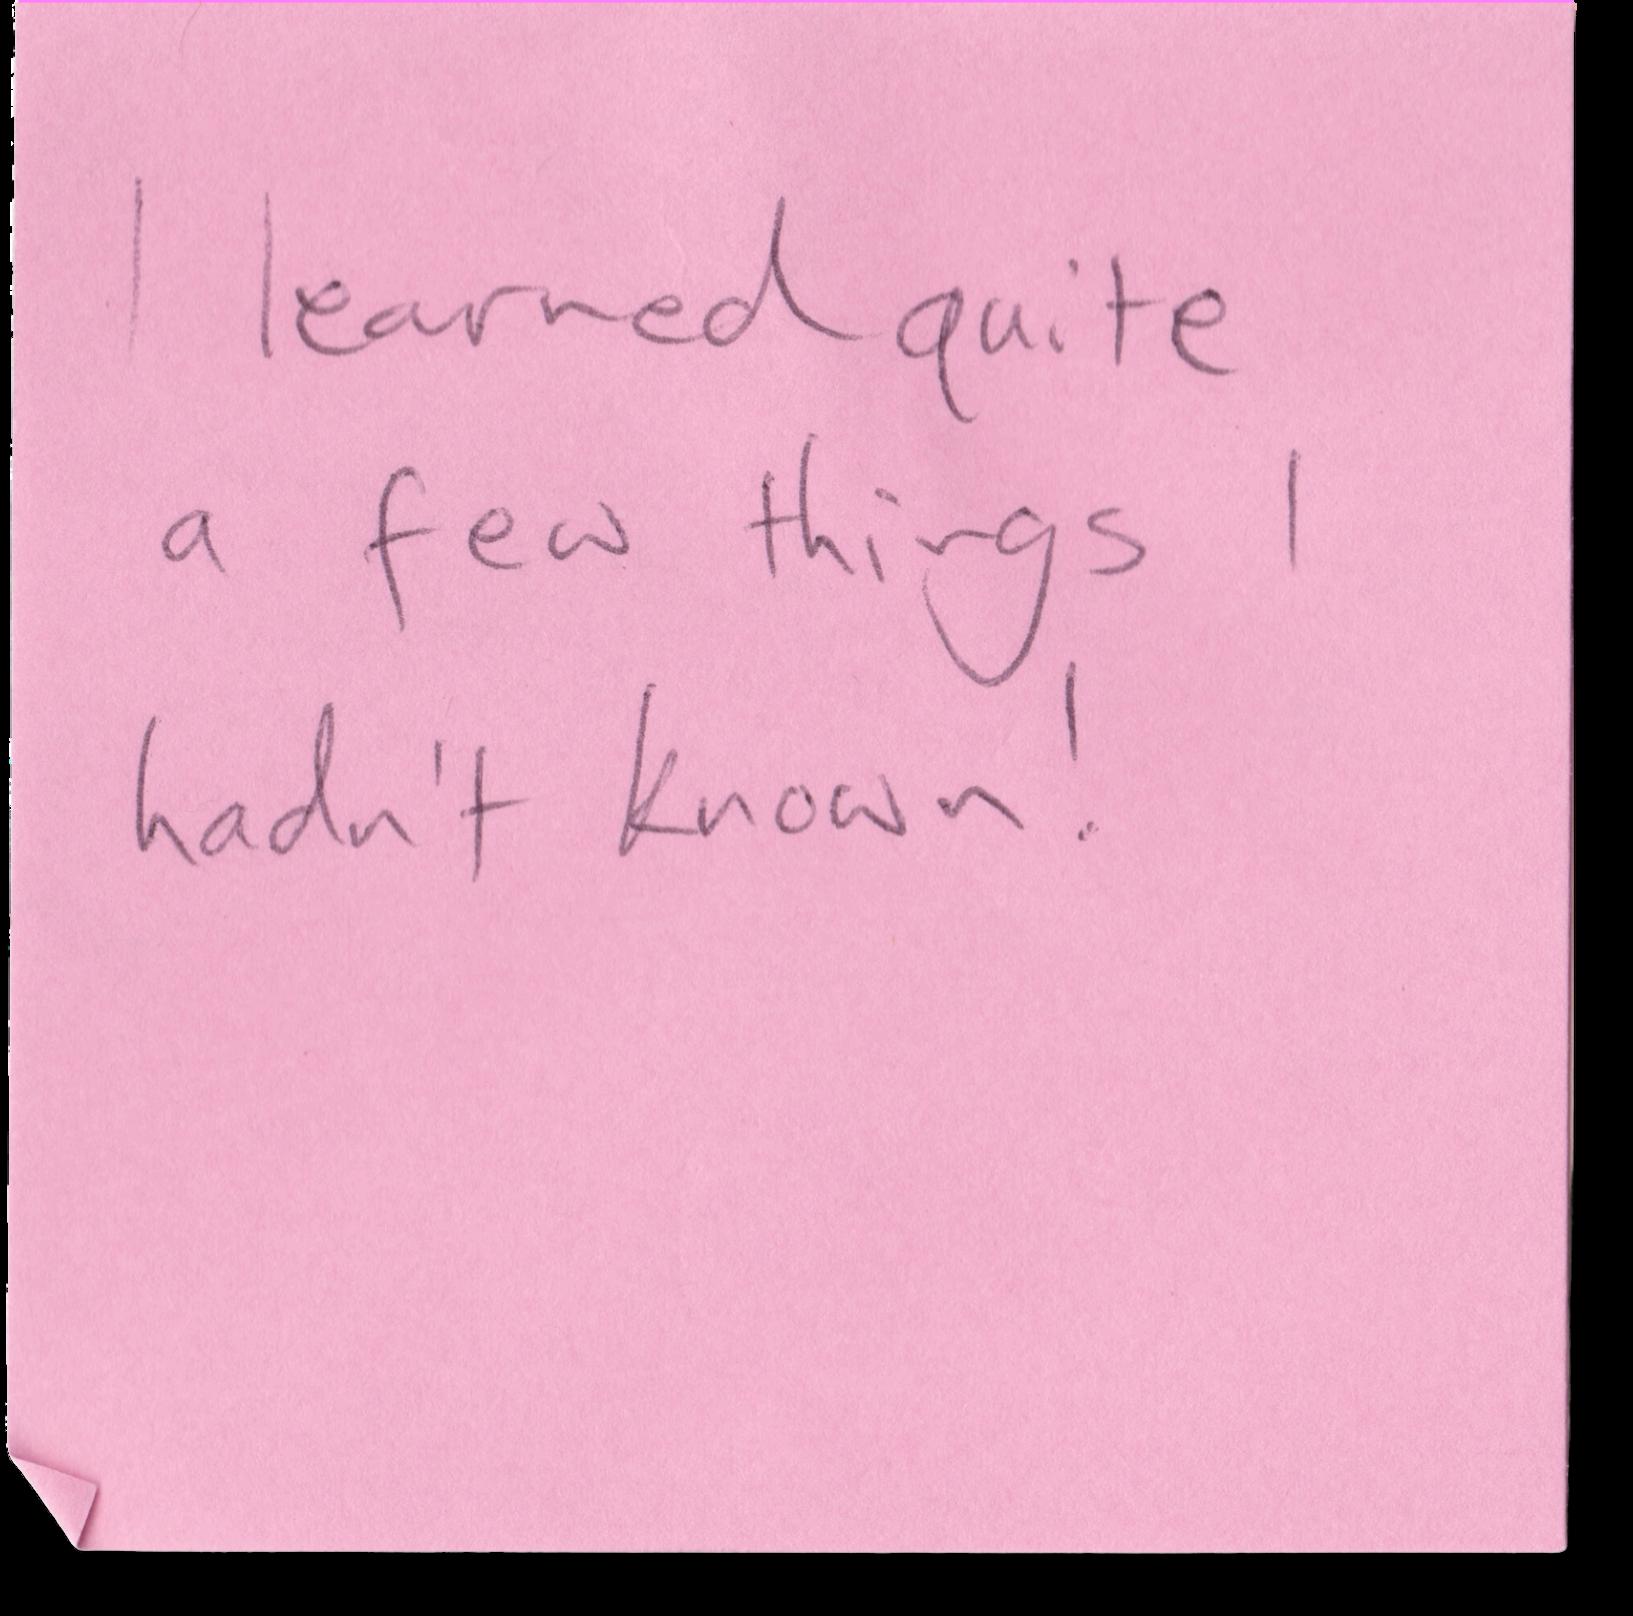 I learned quite
a few things I
hadn't known!